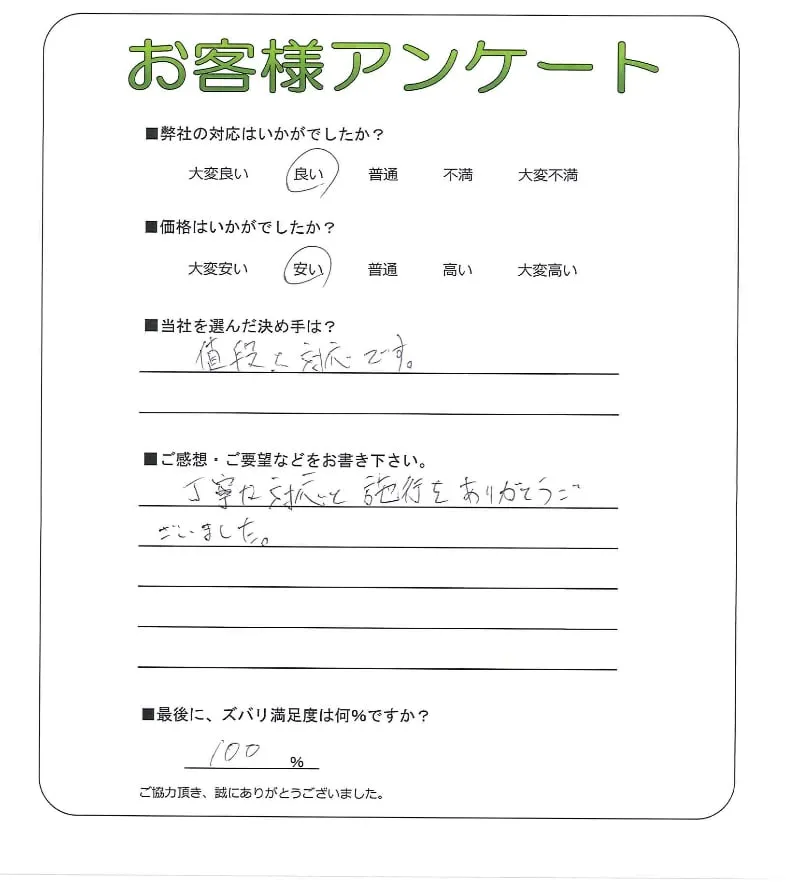 お客様アンケート
■弊社の対応はいかがでしたか?
大変良い 良い 普通 不満 大変不満
■価格はいかがでしたか?
大変安い 安い 普通 高い 大変高い
■当社を選んだ決め手は?
値段と対応です。
■ご感想・ご要望などをお書き下さい。
丁寧な対応と施行をありがとうご
ざいました。
■最後に、ズバリ満足度は何%ですか?
100 %
ご協力頂き、誠にありがとうございました。